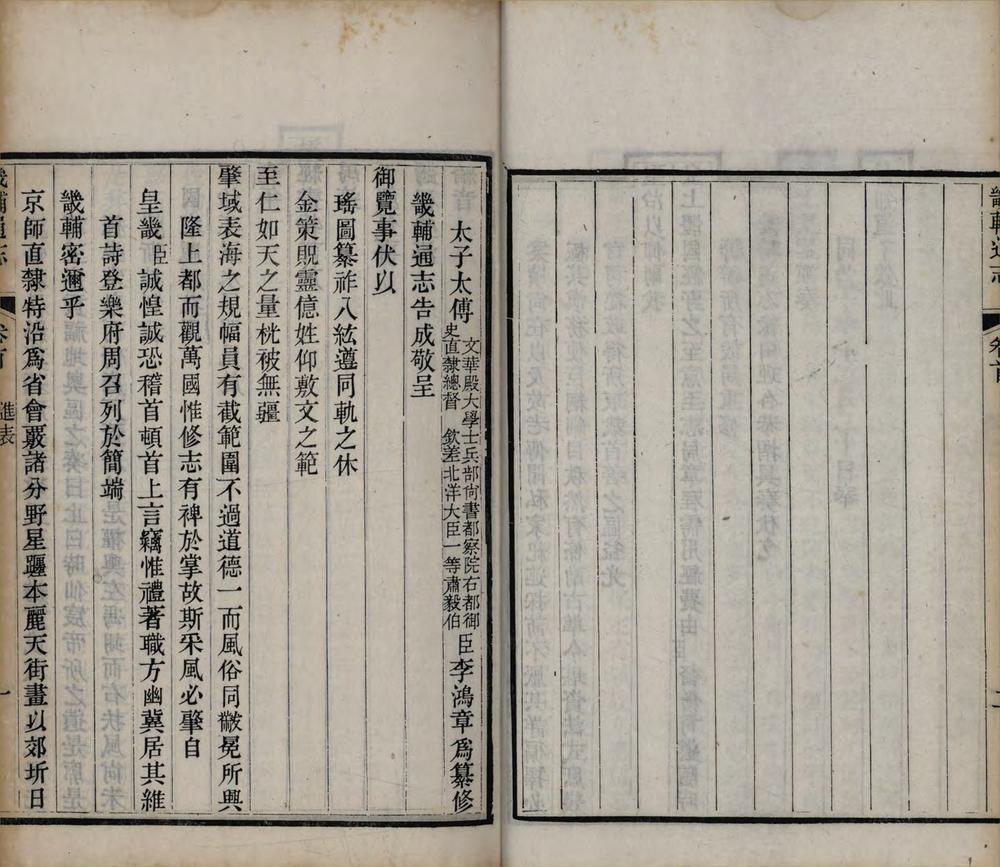 畿輔通志
太子太傅文華殿大學士兵部尙書都察院右都御史直隸總督 欽差北洋大臣一等肅毅伯臣李鴻章爲纂修
畿輔通志告成敬呈
御覽事伏以
瑤圖纂祚八紘遵同軌之休
金策貺靈億姓仰敷文之範
至仁如天之量桄被無疆
肇域表海之規幅員有截範圍不過道德一而風俗同黻冕所興
隆上都而觀萬國惟修志有裨於掌故斯采風必肇自
皇畿臣誠惶誠恐稽首頓首上言竊惟禮著職方幽冀居其維
首詩登樂府周召列於簡端
畿輔密邇乎
京師直隸特沿爲省會嚴諸分野星躔本麗天街畫以郊圻日
畿輔通志
進表
一